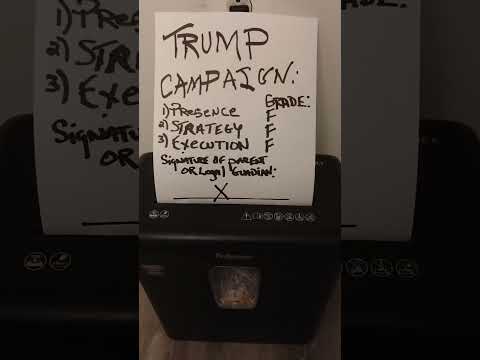 TRUMP
CAMPAIGN:
GRADE:
1) PRESENCE F
2) STRATEGY F
3) EXECUTION F
SIGNATURE OF PARENT
OR LEGAL GUADIAN:
X